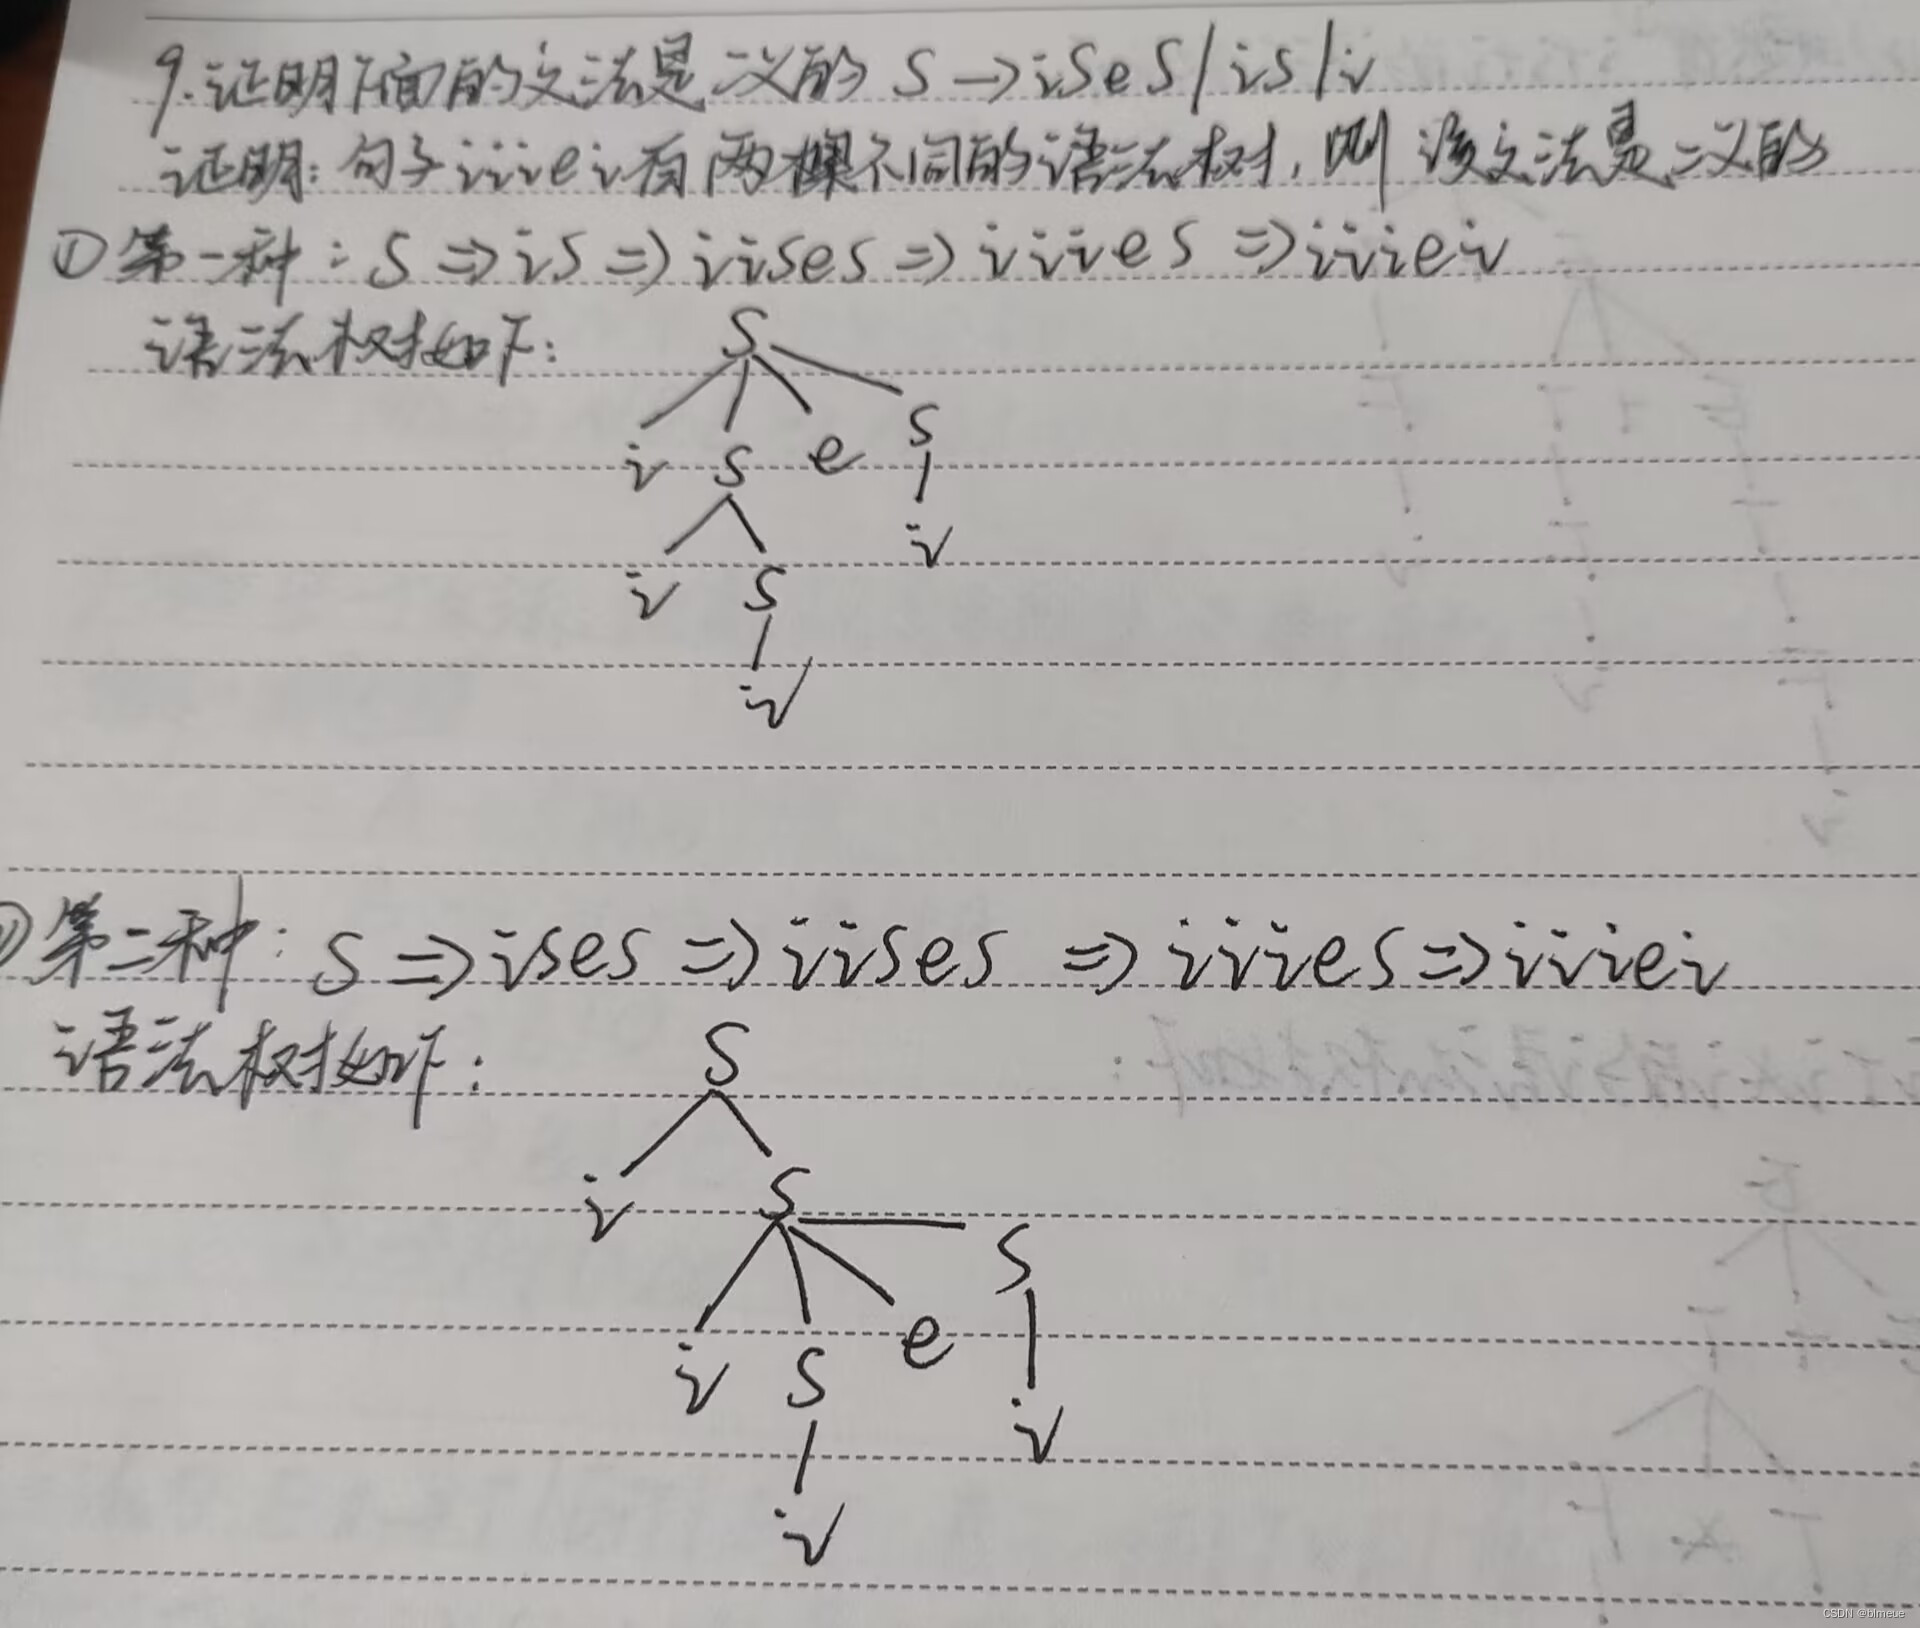 9.证明下面的文法是二义的 S→iSeS|iS|i
证明:句子iiiei有两棵不同的语法树,则该文法是二义的
①第一种:S⇒iS⇒iiSeS⇒iiieS⇒iiiei
语法树如下:
S
i S e S
i S i
i
②第二种:S⇒iSeS⇒iiSeS⇒iiieS⇒iiiei
语法树如下:
S
i S
i S e S
i i
CSDN @blmeue